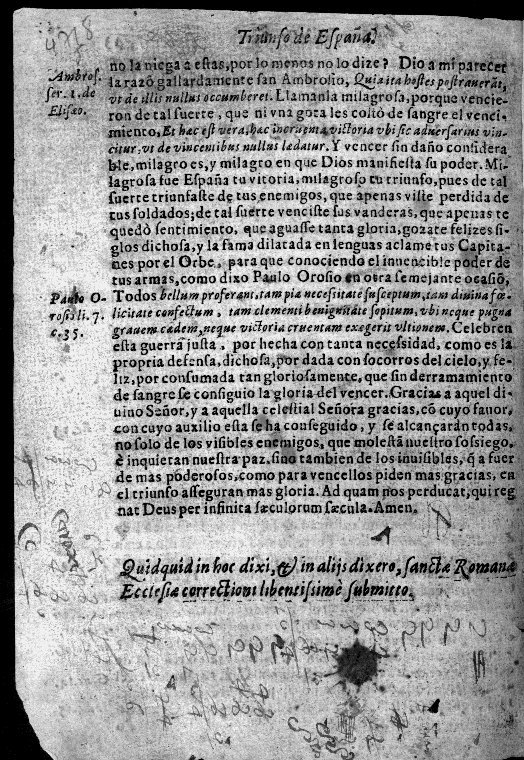 4718
Triunfo de España.
no la niega a estas, por lo menos no lo dize? Dio a mi parecer
la razõ gallardamente san Ambrosio, Quia ita hostes postrauerãt,
vt de illis nullus occumberet. Llamanla milagrosa, porque vencie-
ron de tal suerte, que ni vna gota les costò de sangre el venci-
miento, Et hæc est vera, hæc incruenta victoria vbi sic aduersarius vin-
citur, vt de vincentibus nullus lædatur. Y vencer sin daño considera
ble, milagro es, y milagro en que Dios manifiesta su poder. Mi-
lagrosa fue España tu vitoria, milagroso tu triunfo, pues de tal
suerte triunfaste de tus enemigos, que apenas viste perdida de
tus soldados; de tal suerte venciste sus vanderas, que apenas te
quedò sentimiento, que aguasse tanta gloria, gozate felizes si-
glos dichosa, y la fama dilatada en lenguas aclame tus Capita-
nes por el Orbe, para que conociendo el inuencible poder de
tus armas, como dixo Paulo Orosio en otra semejante ocasiõ,
Todos bellum proferant, tam pia necessitate susceptum, tam diuina fœ-
licitate confectum, tam clementi benignitate sopitum, vbi neque pugna
grauem cædem, neque victoria cruentam exegerit vltionem. Celebren
esta guerra justa, por hecha con tanta necessidad, como es la
propria defensa, dichosa, por dada con socorros del cielo, y fe-
liz, por consumada tan gloriosamente, que sin derramamiento
de sangre se consiguio la gloria del vencer. Gracias a aquel di-
uino Señor, y a aquella celestial Señora gracias, cõ cuyo fauor,
con cuyo auxilio esta se ha conseguido, y se alcançarán todas,
no solo de los visibles enemigos, que molestã nuestro sossiego,
è inquietan nuestra paz, sino tambien de los inuisibles, q̃ a fuer
de mas poderosos, como para vencellos piden mas gracias, en
el triunfo asseguran mas gloria. Ad quam nos perducat, qui reg
nat Deus per infinita sæculorum sæcula. Amen.
Ambros.
ser. 1. de
Eliseo.
Paulo O-
rosi li. 7.
c. 35.
Quidquid in hoc dixi, & in alijs dixero, sanctæ Romanæ
Ecclesiæ correctioni libentissimè submitto.